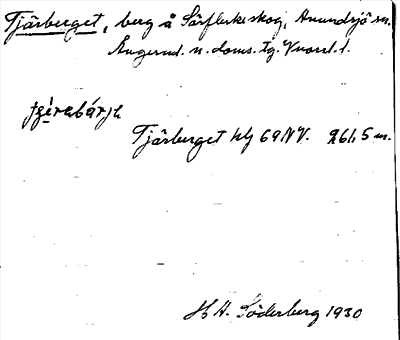 Tjärberget, berg å Särflerkeskog, Anundsjö sn.
Ångerml. n. doms. tg. Vnorrl. l.
Tjärberget hlj 69NV. 261,5 m.
H A. Söderberg 1930